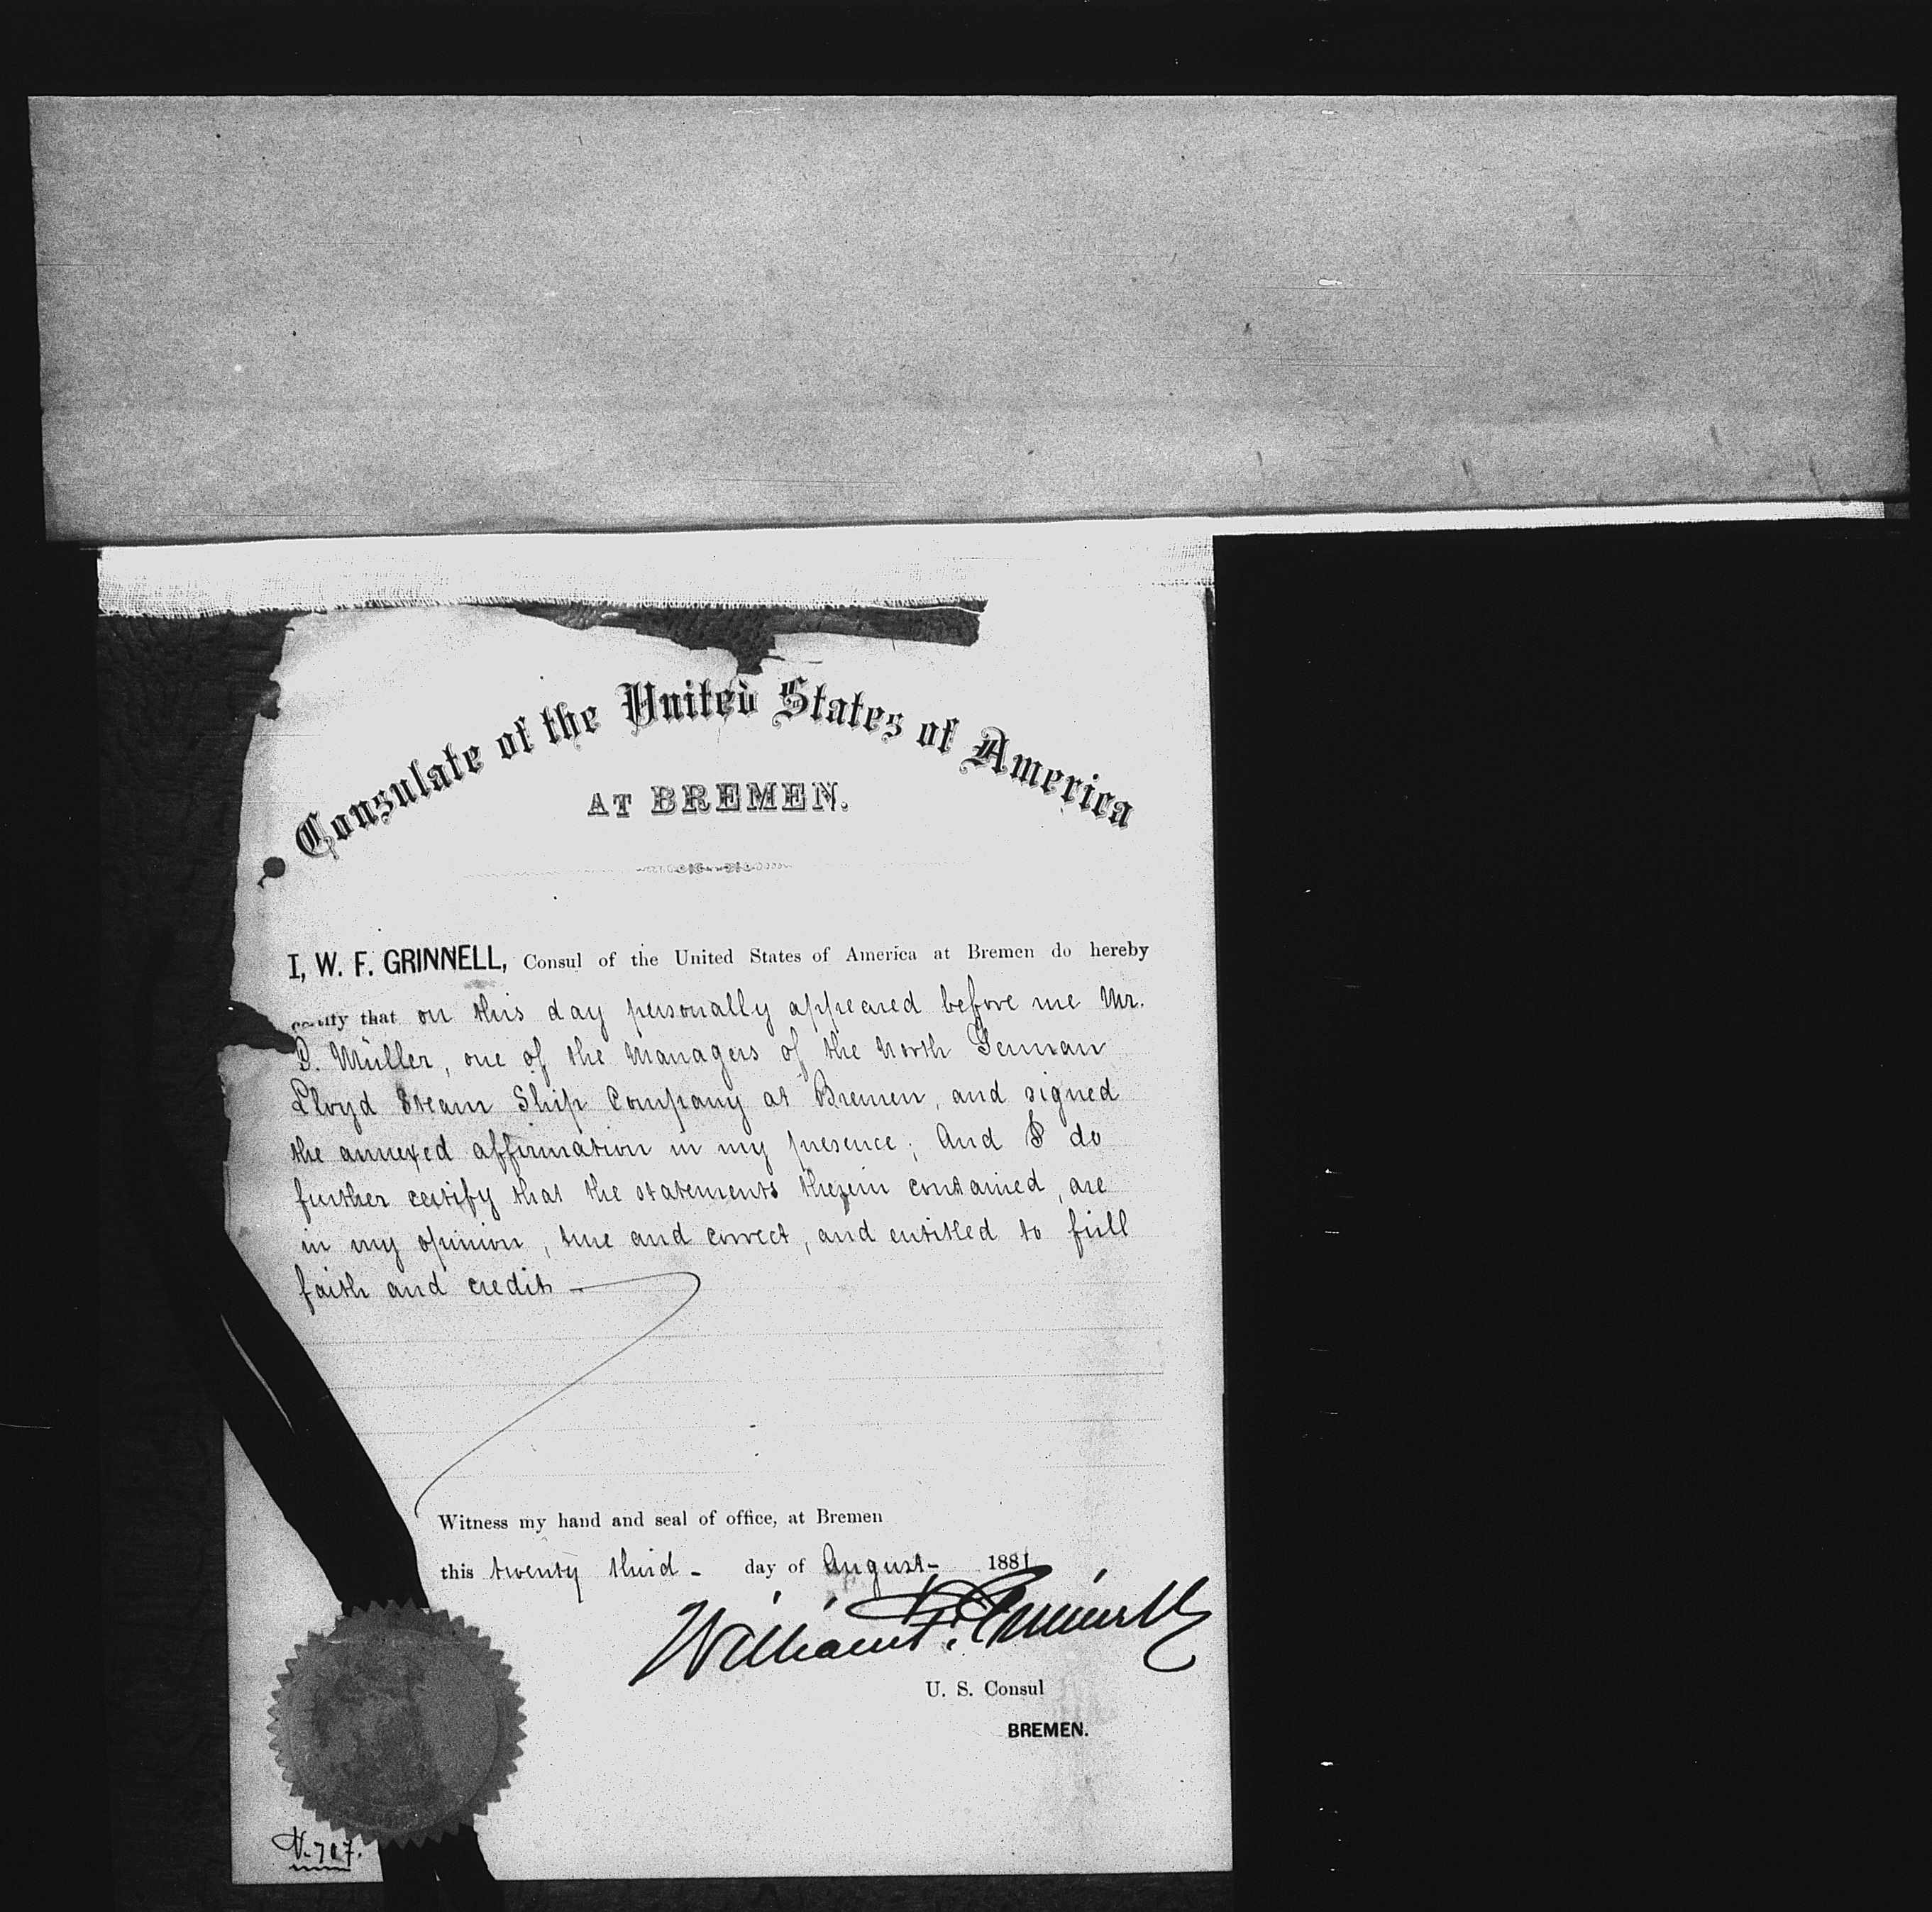 Consulate of the United States of America
AT BREMEN.
I, W. F. GRINNELL, Consul of the United States of America at Bremen do hereby
certify that on this day personally appeared before me Mr.
Müller, one of the Managers of the North German
Lloyd Steam Ship Company at Bremen, and signed
the annexed affirmation in my presence; And I do
further certify that the statements therein contained, are
in my opinion, true and correct, and entitled to full
faith and credit —
Witness my hand and seal of office, at Bremen
this twenty third - day of August - 1881
William F. Grinnell
U. S. Consul
BREMEN.
707.